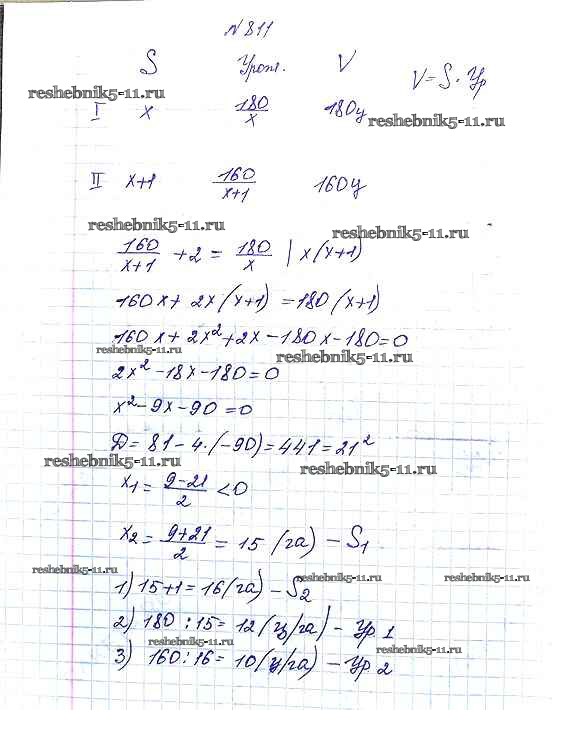 № 811
S Урож. V V=S·Ур
reshebnik5-11.ru
I x 180/x 180ц
reshebnik5-11.ru
II x+1 160/(x+1) 160ц
reshebnik5-11.ru reshebnik5-11.ru
160/(x+1) + 2 = 180/x | x(x+1)
160x + 2x(x+1) = 180(x+1)
160x + 2x² + 2x - 180x - 180 = 0
reshebnik5-11.ru reshebnik5-11.ru
2x² - 18x - 180 = 0
x² - 9x - 90 = 0
Д = 81 - 4·(-90) = 441 = 21²
reshebnik5-11.ru reshebnik5-11.ru
x₁ = (9-21)/2 < 0
x₂ = (9+21)/2 = 15 (га) - S₁
reshebnik5-11.ru reshebnik5-11.ru reshebnik5-11.ru
1) 15+1 = 16 (га) - S₂
2) 180 : 15 = 12 (ц/га) - Ур 1
reshebnik5-11.ru reshebnik5-11.ru
3) 160 : 16 = 10 (ц/га) - Ур 2